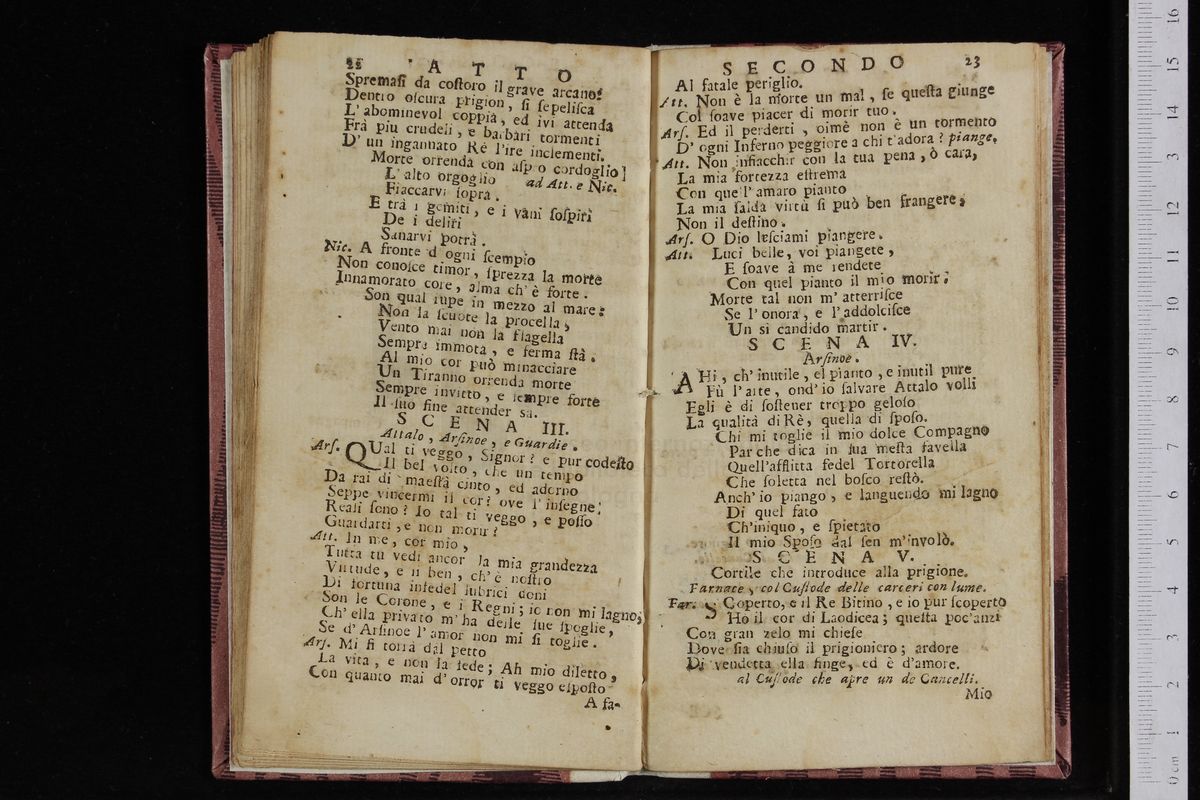 22 ATTO
Spremasi da costoro il grave arcano!
Dentro oscura prigion, si sepelisca
L'abominevol coppia, ed ivi attenda
Frà più crudeli, e barbari tormenti
D' un ingannato Rè l'ire inclementi.
Morte orrenda con aspro cordoglio]
L'alto orgoglio ad Att. e Nic.
Fiaccarvi sopra.
E trà i gemiti, e i vani sospiri
De i deliri
Sanarvi potrà.
Nic. A fronte d'ogni scempio
Non conosce timor, sprezza la morte
Innamorato core, alma ch'è forte.
Son qual rupe in mezzo al mare:
Non la scuote la procella,
Vento mai non la flagella
Sempre immota, e ferma stà.
Al mio cor può minacciare
Un Tiranno orrenda morte
Sempre invitto, e sempre forte
Il suo fine attender sa.
SCENA III.
Attalo, Arsinoe, e Guardie.
Ars. QUal ti veggo, Signor? e pur codesto
Il bel volto, che un tempo
Da rai di maestà cinto, ed adorno
Seppe vincermi il cor? ove l'insegne
Reali sono? Io tal ti veggo, e posso
Guardarti, e non morir?
Att. In me, cor mio,
Tutta tu vedi ancor la mia grandezza
Virtude, e il ben, ch'è nostro
Di fortuna infedel lubrici doni
Son le Corone, e i Regni; io non mi lagno,
Ch'ella privato m'ha delle sue spoglie,
Se d'Arsinoe l'amor non mi si toglie.
Ars. Mi si torrà dal petto
La vita, e non la fede; Ah mio diletto,
Con quanto mai d'orror ti veggo esposto
A fa-
SECONDO 23
Al fatale periglio.
Att. Non è la morte un mal, se questa giunge
Col soave piacer di morir tuo.
Ars. Ed il perderti, oimè non è un tormento
D'ogni Inferno peggiore a chi t'adora? piange.
Att. Non infiacchir con la tua pena, ò cara,
La mia fortezza estrema
Con quel'amaro pianto
La mia salda virtù si può ben frangere,
Non il destino.
Ars. O Dio lasciami piangere.
Att. Luci belle, voi piangete,
E soave à me rendete
Con quel pianto il mio morir.
Morte tal non m'atterrisce
Se l'onora, e l'addolcisce
Un sì candido martir.
SCENA IV.
Arsinoe.
AHi, ch'inutile, el pianto, e inutil pure
Fù l'arte, ond'io salvare Attalo volli
Egli è di sostener troppo geloso
La qualità di Rè, quella di sposo.
Chi mi toglie il mio dolce Compagno
Par che dica in sua mesta favella
Quell'afflitta fedel Tortorella
Che soletta nel bosco restò.
Anch'io piango, e languendo mi lagno
Di quel fato
Ch'iniquo, e spietato
Il mio Sposo dal sen m'involò.
SCENA V.
Cortile che introduce alla prigione.
Farnace, col Custode delle carceri con lume.
Far. SCoperto, e il Re Bitino, e io pur scoperto
Ho il cor di Laodicea; questa poc'anzi
Con gran zelo mi chiese
Dove sia chiuso il prigioniero; ardore
Di vendetta ella finge, ed è d'amore.
al Custode che apre un de Cancelli.
Mio
0 cm 1 2 3 4 5 6 7 8 9 10 11 12 13 14 15 16